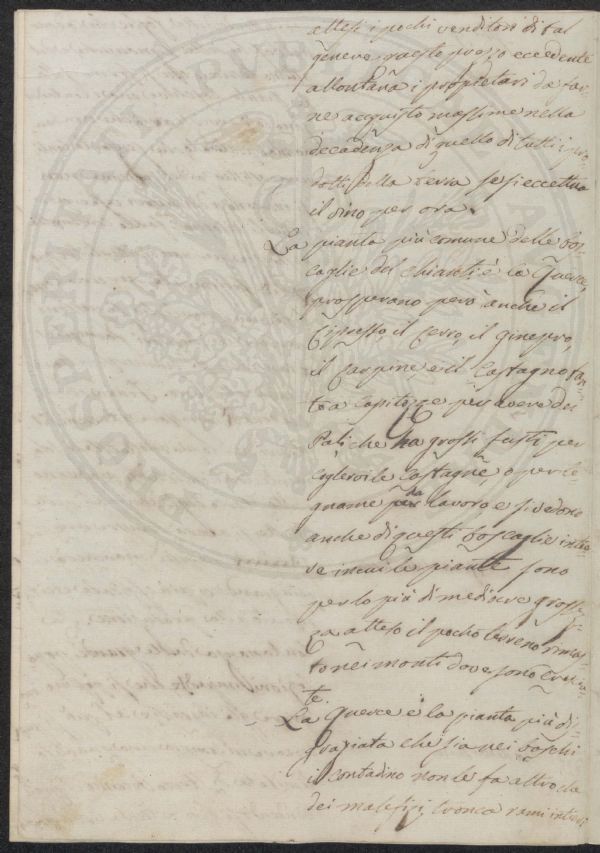 attesi i pochi venditori di tal
genere, questo prezzo eccedente
allontana i proprietari da far-
ne acquisto massime nella
decadenza di quello di tutti i pro-
dotti della terra se si eccettua
il vino per ora.
La pianta più comune delle bos-
caglie del Chianti è la Querce,
prosperano però anche il
Cipresso, il Cerro, il ginepro,
il Carpine, e il Castagno tan-
to a Capitozze per avere dei
Pali, che ha grossi fusti per
coglervi le Castagne, o per le
gname da lavoro e si vedono
anche di questi boscaglie intie-
re in cui le piante sono
per lo più di mediocre gross-
za atteso il pocho terreno rimas-
to nei monti dove sono
te.
La Querce è la pianta più di-
sgraziata che sia nei boschi
il contadino non le fa altro da
dei malefizi, tronca rami intieri